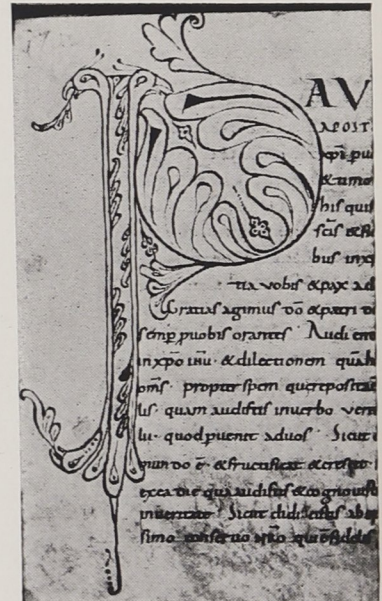 PAV
APOST
xpi
& timo
his qui
scis & fi
bus in x
tia vobis & pax ad
Gratias agimus dō & patri
semp p uobis orantes Audien
in xpo ihu · & dilectionem quā h
omīs · propter spem que reposita
lis · quam audistis in uerbo veri
lu · quod puenit ad uos · Sicut
mundo ē · & fructificat & crescit
ex ea die qua audistis & cognouisti
in ueritate · Sicut didicistis ab
simo conseruo nr̄o qui ē fidelis